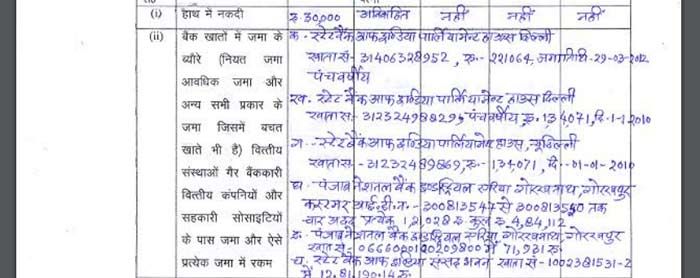 (i) हाथ में नकदी रु. 30,000 अविवाहित नहीं नहीं नहीं
(ii) बैंक खातों में जमा के
ब्यौरे (नियत जमा
आवधिक जमा और
अन्य सभी प्रकार के
जमा जिसमें बचत
खाते भी है) वित्तीय
संस्थाओं गैर बैंककारी
वित्तीय कंपनियों और
सहकारी सोसाइटियों
के पास जमा और ऐसे
प्रत्येक जमा में रकम
क- स्टेट बैंक आफ इण्डिया पार्लियामेन्ट हाउस दिल्ली
खाता सं- 31406328952, रु.- 221064, जमा तिथि-29-03-2012
पंचवर्षीय
ख. स्टेट बैंक आफ इण्डिया पार्लियामेन्ट हाउस दिल्ली
खाता सं. - 312324988295 पंचवर्षीय रु. 134,071, दि.-1-1-2010
ग- स्टेट बैंक आफ इण्डिया पार्लियामेन्ट हाउस, न्यू दिल्ली
खाता सं - 31232489869, रु.- 134,071, दि.- 01-01-2010
घ- पंजाब नेशनल बैंक इण्डस्ट्रियल एरिया गोरखनाथ, गोरखपुर
कस्टमर आई.डी.न.- 300813547 से 300813550 तक
चार अदद प्रत्येक 1,21,028 रु. कुल रु. 4,84,112
ङ- पंजाब नेशनल बैंक इण्डस्ट्रियल एरिया गोरखनाथ, गोरखपुर
खाता सं- 0666000102029800 में 71,931 रु.
च- स्टेट बैंक आफ इण्डिया संसद भवन खाता सं- 1002381531-2
में 12,81,190.14 रु.